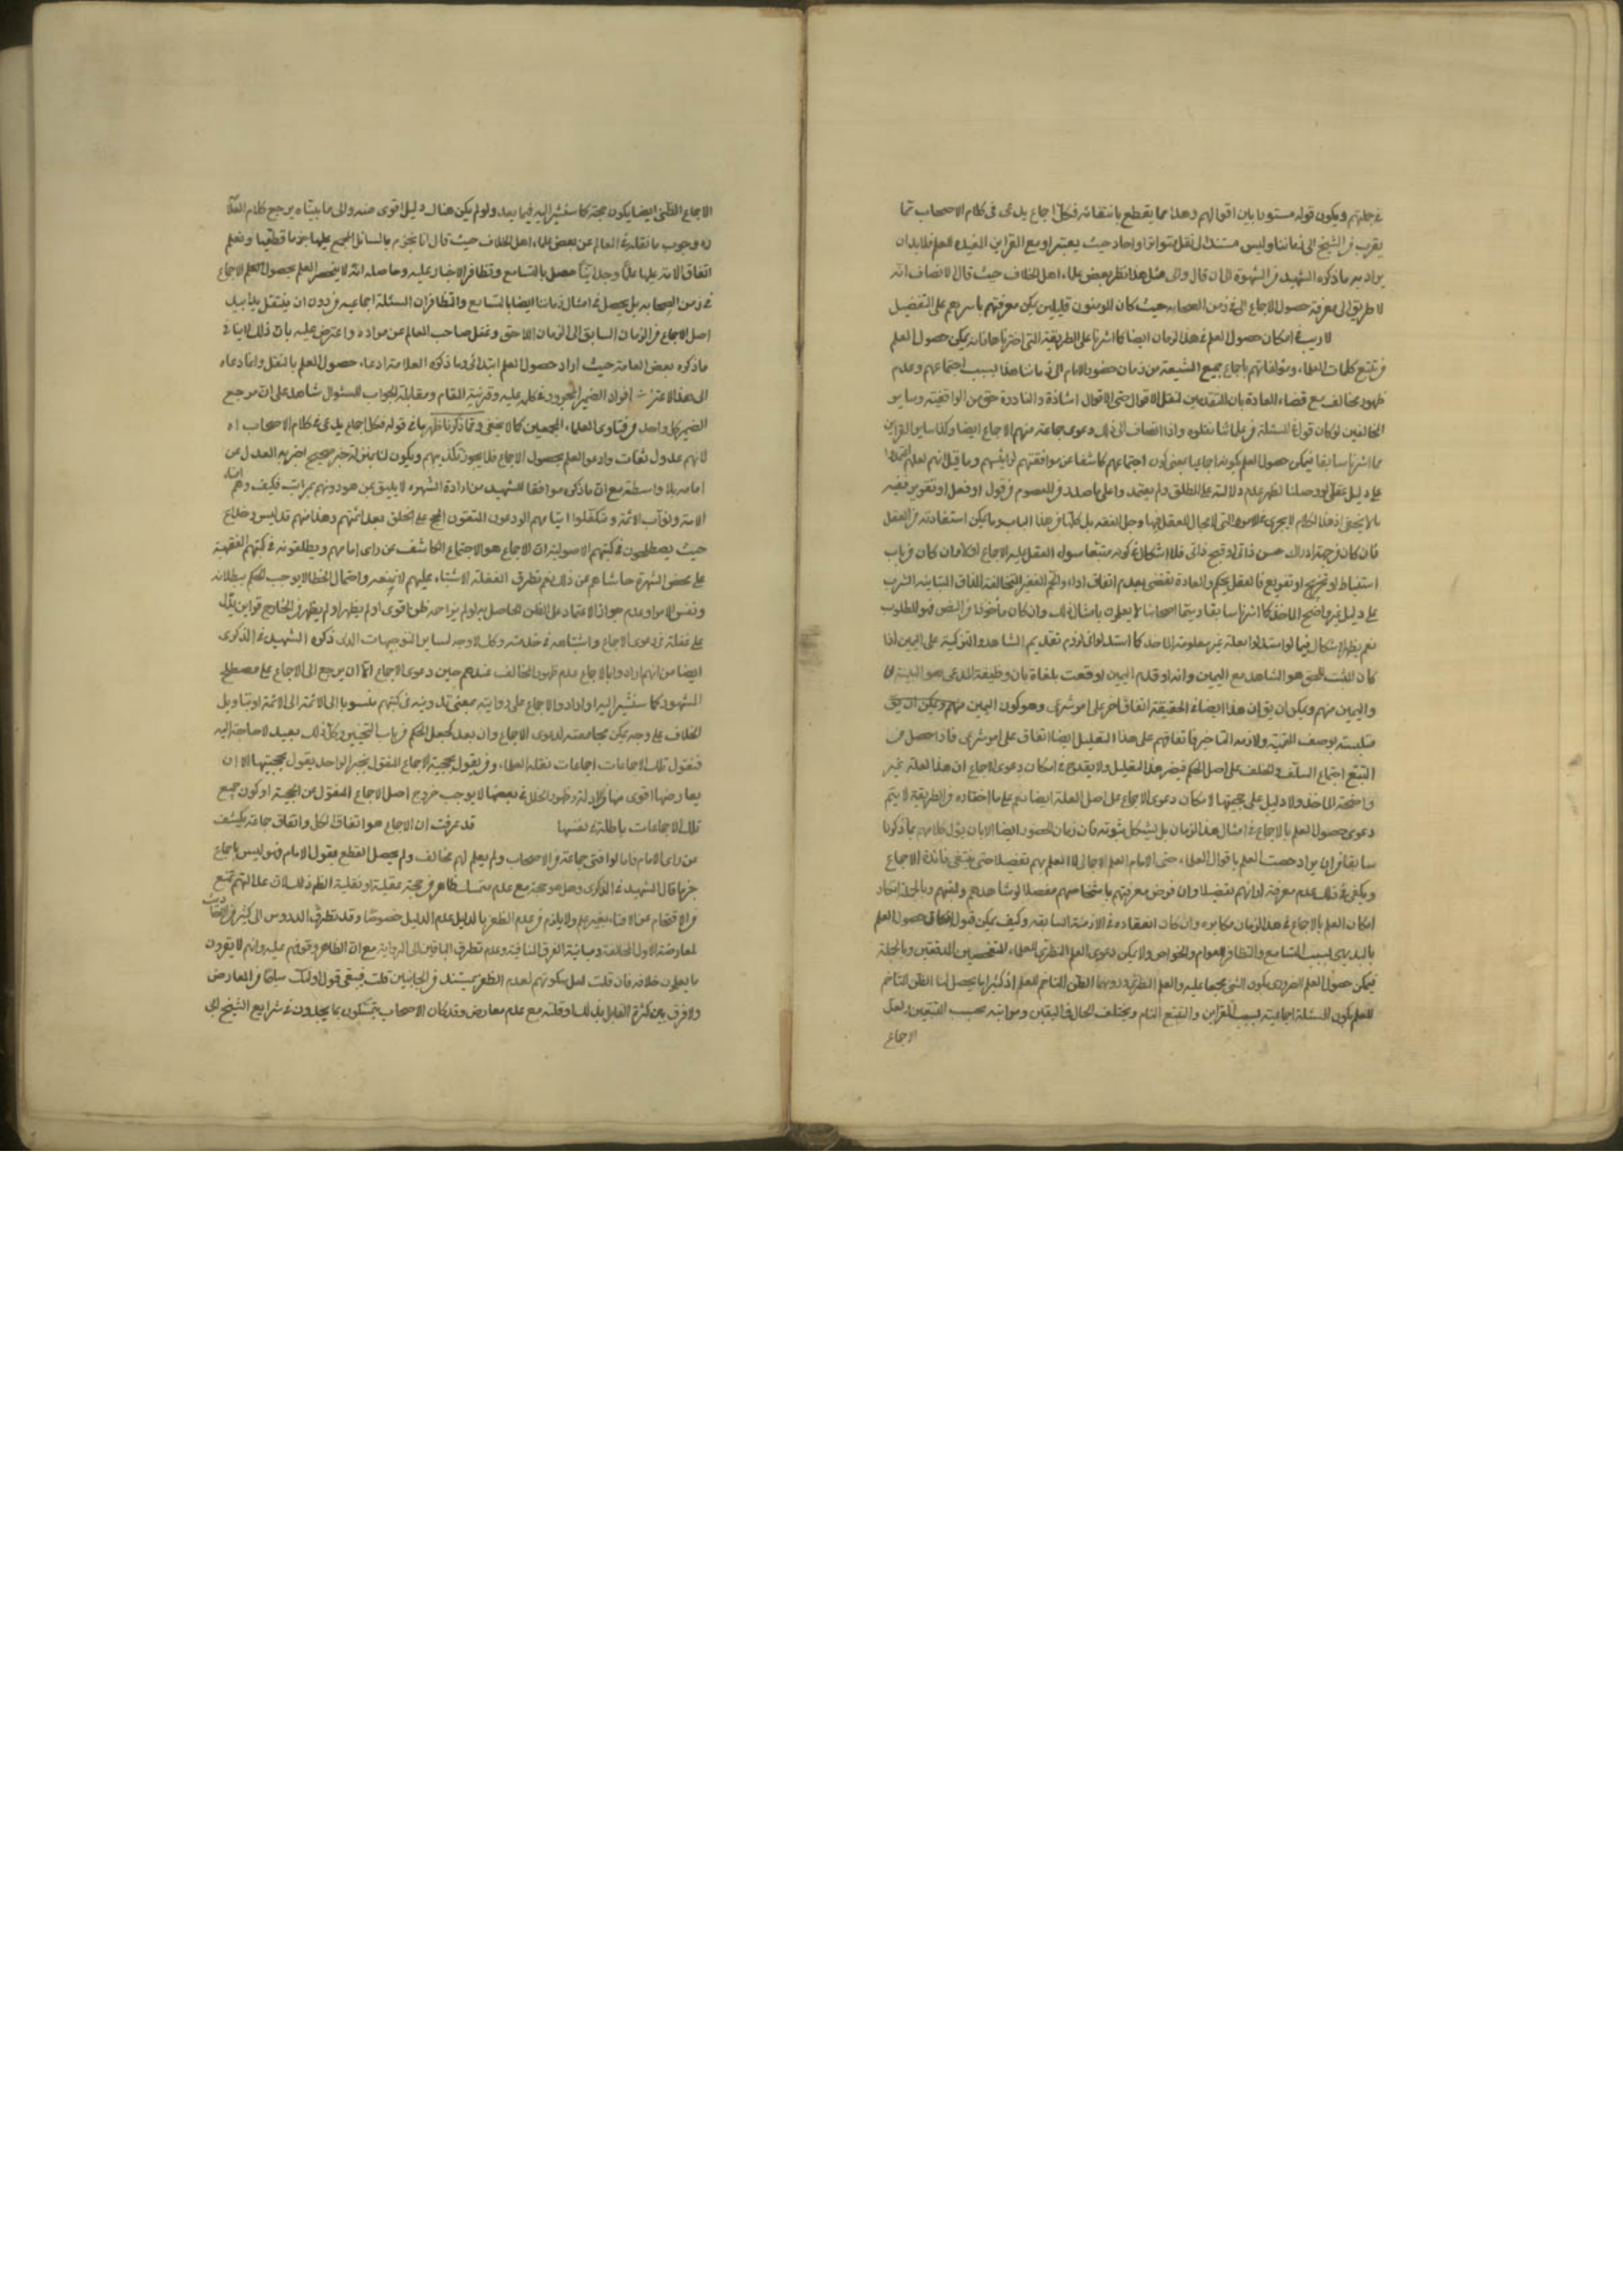 في جملتهم ويكون قوله مستورا بين اقوالهم وهذا مما يقطع بانتفائه فكل اجماع يدعى في كلام الاصحاب مما
يقرب من الشيخ الى زماننا وليس مستندا الى نقل متواتر او احاد حيث يعتبر او مع القراين المفيدة للعلم فلا بد ان
يراد به ما ذكره الشهيد من الشهرة الى ان قال والى مثل هذا نظر بعض علماء اهل الخلاف حيث قال الانصاف انه
لا طريق الى معرفة حصول الاجماع الا في زمن الصحابة حيث كان المؤمنون قليلين يمكن معرفتهم باسرهم على التفصيل
لا ريب في امكان حصول العلم في هذا الزمان ايضا كما اشرنا على الطريقة التي اخترناها فانه يمكن حصول العلم
من تتبع كلمات العلماء ومؤلفاتهم باجماع جميع الشيعة من زمان حضور الامام الى زماننا هذا بسبب اجتماعهم وعدم
ظهور مخالف مع قضاء العادة بان المتقدمين لنقل الاقوال حتى الاقوال الشاذة والنادرة حتى من الواقفية وساير
المخالفين لو كان قول في المسئلة من علمائنا نقلوه واذا انضاف الى ذلك دعوى جماعة منهم الاجماع ايضا وكذا ساير القراين
مما اشرنا سابقا فيمكن حصول العلم بكونه اجماعيا بمعنى كون اجتماعهم كاشفا عن موافقتهم لرئيسهم وما قيل انهم لعلهم اعتمدوا
على دليل عقلي لو وصل الينا لظهر عدم دلالته على المطلق ولم يعتمدوا على ما صدر من المعصوم من قول او فعل او تقرير ففيه
ما لا يخفى اذ هذا الكلام لا يجري في الامور التي لا مجال للعقل فيها وجل الفقه بل كلها من هذا الباب وما يمكن استفادته من العقل
فان كان من جهة ادراك حسن ذاتي او قبح ذاتي فلا اشكال في كونه متبعا سواء انعقد عليه الاجماع ام لا وان كان من باب
استنباط او تخريج او تفريع فالعقل يحكم والعادة تقضي بعدم اتفاق اراء الجم الغفير المتخالفة المذاق المتباينة المشرب
على دليل غير واضح الماخذ كما اشرنا سابقا وسيما اصحابنا لا يعملون بامثال ذلك وان كان مأخوذا من النص فهو المطلوب
نعم يظهر الاشكال فيما لو استدلوا بعلة غير معلومة الماخذ كما استدلوا في لزوم تقديم الشاهد والتزكية على اليمين اذا
كان المثبت للحق هو الشاهد مع اليمين وانه لو قدم اليمين لوقعت ملغاة بان وظيفة المدعي هو البينة لا
واليمين متمم ويمكن ان يق ان هذا ايضا في الحقيقة اتفاق اخر على امر شرعي وهو كون اليمين متمم ويمكن ان يق
متلبسة بوصف التتمية ولازمه التاخير فاتفاقهم على هذا التعليل ايضا اتفاق على امر شرعي فاذا حصل من
التتبع اجتماع السلف والخلف على اصل الحكم فيضر هذا التعليل ولا يقدح في امكان دعوى الاجماع ان هذا لعلة غير
واضحة الماخذ ولا دليل على حجيتها لامكان دعوى الاجماع على اصل العلة ايضا نعم على ما اختاره في الطريقة لا يتم
دعوى حصول العلم بالاجماع في امثال هذا الزمان بل يشكل ثبوته في زمان الحضور ايضا الا بان يؤل كلامهم بما ذكرنا
سابقا من ان يراد حصل العلم باقوال العلماء حتى الامام العلم الاجمالي لا العلم بهم تفصيلا حتى ينتفي فائدة الاجماع
ويكفي في ذلك عدم معرفة لوازمهم تفصيلا وان فرض معرفتهم باشخاصهم مفصلا لو شاهدهم ولقيهم وبالجملة انكار
امكان العلم بالاجماع في هذا الزمان مكابرة وان كان انعقاده في الازمنة السابقة وكيف يمكن قبول امكان حصول العلم
بالبديهي بسبب التسامع والتظافر للعوام والخواص ولا يمكن دعوى العلم النظري للعلماء المتفحصين المدققين وبالجملة
فيمكن حصول العلم الضروري بكون الشي مجمعا عليه والعلم النظري ودونهما الظن المتاخم للعلم اذ كثيرا ما يحصل لنا الظن المتاخم
للعلم بكون المسئلة اجماعية بسبب القراين والتتبع التام ويختلف الحال في اليقين ومراتبه بحسب المتتبعين ولعل
الاجماع
الاجماع الظني ايضا يكون حجة كما سنشير اليه فيما بعد ولو لم يكن هناك دليل اقوى منه والى ما بيناه يرجع كلام العلامة
ره وجوب ما نقله في المعالم عن بعض علماء اهل الخلاف حيث قال انا نجزم بالمسائل المجمع عليها جزما قطعيا ونعلم
اتفاق الامة عليها علما وجدانيا حصل بالتسامع وتظافر الاخبار عليه وحاصله انه لا ينحصر العلم بحصول العلم الاجماع
في زمن الصحابة بل يحصل في امثال زماننا ايضا بالتسامع والتظافر ان المسئلة اجماعية من دون ان ينتقل يدا بيد
اصل الاجماع من الزمان السابق الى الزمان اللاحق وغفل صاحب المعالم عن مراده واعترض عليه بان ذلك لا ينافي
ما ذكره بعض العامة حيث اراد حصول العلم ابتداء وما ذكره العلامة ادعاء حصول العلم بالنقل وانما دعاه
الى هذا الاعتراض افراد الضمير المجرور في كلمة عليه وقرينة المقام ومقابلة الجواب للسئوال شاهد على ان مرجع
الضمير كل واحد من فتاوى العلماء المجمعين كما لا يخفى ومما ذكرنا ظهر ما في قوله فكل اجماع يدعى في كلام الاصحاب اه
لانهم عدول ثقات وادعوا العلم بحصول الاجماع فلا يجوز تكذيبهم ويكون لنا بمنزلة خبر صحيح اخبر به العدل عن
امامه بلا واسطة مع ان ما ذكره موافقا للشهيد من ارادة الشهرة لا يليق بمن هو دونهم بمراتب فكيف وهم امناء
الامة ونواب الائمة ومتكفلوا ايتامهم الورعون المتقون الحجج على الخلق بعد ائمتهم وهذا منهم تدليس وخداع
حيث يصطلحون في كتبهم الاصولية ان الاجماع هو الاجتماع الكاشف عن راى امامهم ويطلقونه في كتبهم الفقهية
على محض الشهرة حاشاهم عن ذلك نعم تطرق الغفلة والاشتباه عليهم لا نمنعه واحتمال الخطا لا يوجب الحكم ببطلانه
ونفس الامر وعدم جواز الاعتماد على الظن الحاصل به لو لم يزاحمه ظن اقوى او لم يظهر او لم يظهر في الخارج قراين يدل
على غفلته في دعوى الاجماع واشتباهه في حدسه وكذا لا وجه لساير التوجيهات الذى ذكره الشهيد في الذكرى
ايضا من انهم ارادوا بالاجماع عدم ظهور المخالف عندهم حين دعوى الاجماع اما ان يرجع الى الاجماع على مصطلح
المشهور كما سنشير اليه او ارادوا الاجماع على روايته بمعنى تدوينه في كتبهم منسوبا الى الائمة او بتاويل
الخلاف على وجه يمكن مجامعته لدعوى الاجماع وان بعد كجعل الحكم من باب التخيير وكل ذلك بعيد لا حاجة اليه
فنقول تلك الاجماعات اجماعات نقله العلماء ومن يقول بحجية الاجماع المنقول بخبر الواحد يقول بحجيتها الا ان
يعارضها اقوى منها من الادلة وظهور الخلل في بعضها لا يوجب خروج اصل الاجماع المنقول عن الحجية او كون جميع
تلك الاجماعات باطلة في نفسها قد عرفت ان الاجماع هو اتفاق الكل واتفاق جماعة يكشف
عن راى الامام فاما لو افتى جماعة من الاصحاب ولم يعلم لهم مخالف ولم يحصل القطع بقول الامام فهو ليس باجماع
جزما قال الشهيد في الذكرى وهل هو حجة مع عدم متمسك ظاهر من حجة عقلية او نقلية الظ ذلك لان عدالتهم تمنع
من الاقتحام على الافتاء بغير علم ولا يلزم من عدم الظفر بالدليل عدم الدليل خصوصا وقد تطرق الدروس الى كثير من الاحاديث
لمعارضة الدول المخالفة ومباينة الفرق المنافية وعدم تطرق الباقين الى الرواية مع ان الظاهر وقوفهم عليه وانهم لا يقرون
ما يعلمون خلافه فان قلت لعل سكوتهم لعدم الظفر بمستند من الجانبين قلت فيبقى قول اولئك سليما من المعارض
ولا فرق بين كثرة القائل بذلك او قلته مع عدم معارض وقد كان الاصحاب يتمسكون بما يجدون في شرايع الشيخ ابي